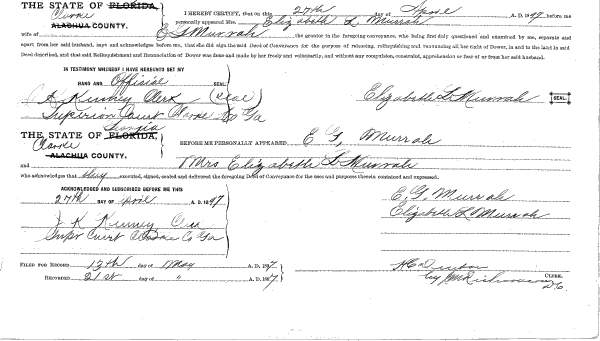 THE STATE OF FLORIDA,
Clarke
ALACHUA COUNTY.
I HEREBY CERTIFY, that on this 27th day of April A. D. 1897 before me
personally appeared Mrs. Elizabeth L Murrah
wife of E G Murrah the grantor in the foregoing conveyance, who being first duly questioned and examined by me, separate and
apart from her said husband, says and acknowledges before me, that she did sign the said Deed of Conveyance for the purpose of releasing, relinquishing and renouncing all her right of Dower, in and to the land in said
Deed described, and that said Relinquishment and Renunciation of Dower was done and made by her freely and voluntarily, and without any compulsion, constraint, apprehension or fear of or from her said husband.
IN TESTIMONY WHEREOF I HAVE HEREUNTO SET MY
HAND AND Official SEAL.
K Kinney Clerk (seal) Elizabeth L Murrah SEAL.
Superior Court Clarke Co Ga
Georgia
THE STATE OF FLORIDA,
Clarke
ALACHUA COUNTY.
BEFORE ME PERSONALLY APPEARED E G, Murrah
and Mrs Elizabeth L Murrah
who acknowledges that they executed, signed, sealed and delivered the foregoing Deed of Conveyance for the uses and purposes therein contained and expressed.
ACKNOWLEDGED AND SUBSCRIBED BEFORE ME THIS
27th DAY OF April A. D. 1897
E. G. Murrah
Elizabeth L Murrah
J K Kinney Clerk
Supr Court Clarke Co Ga
FILED FOR RECORD 13th day of May A. D. 1897.
RECORDED 21st day of " A. D. 1897.
CLERK.
by D.C.